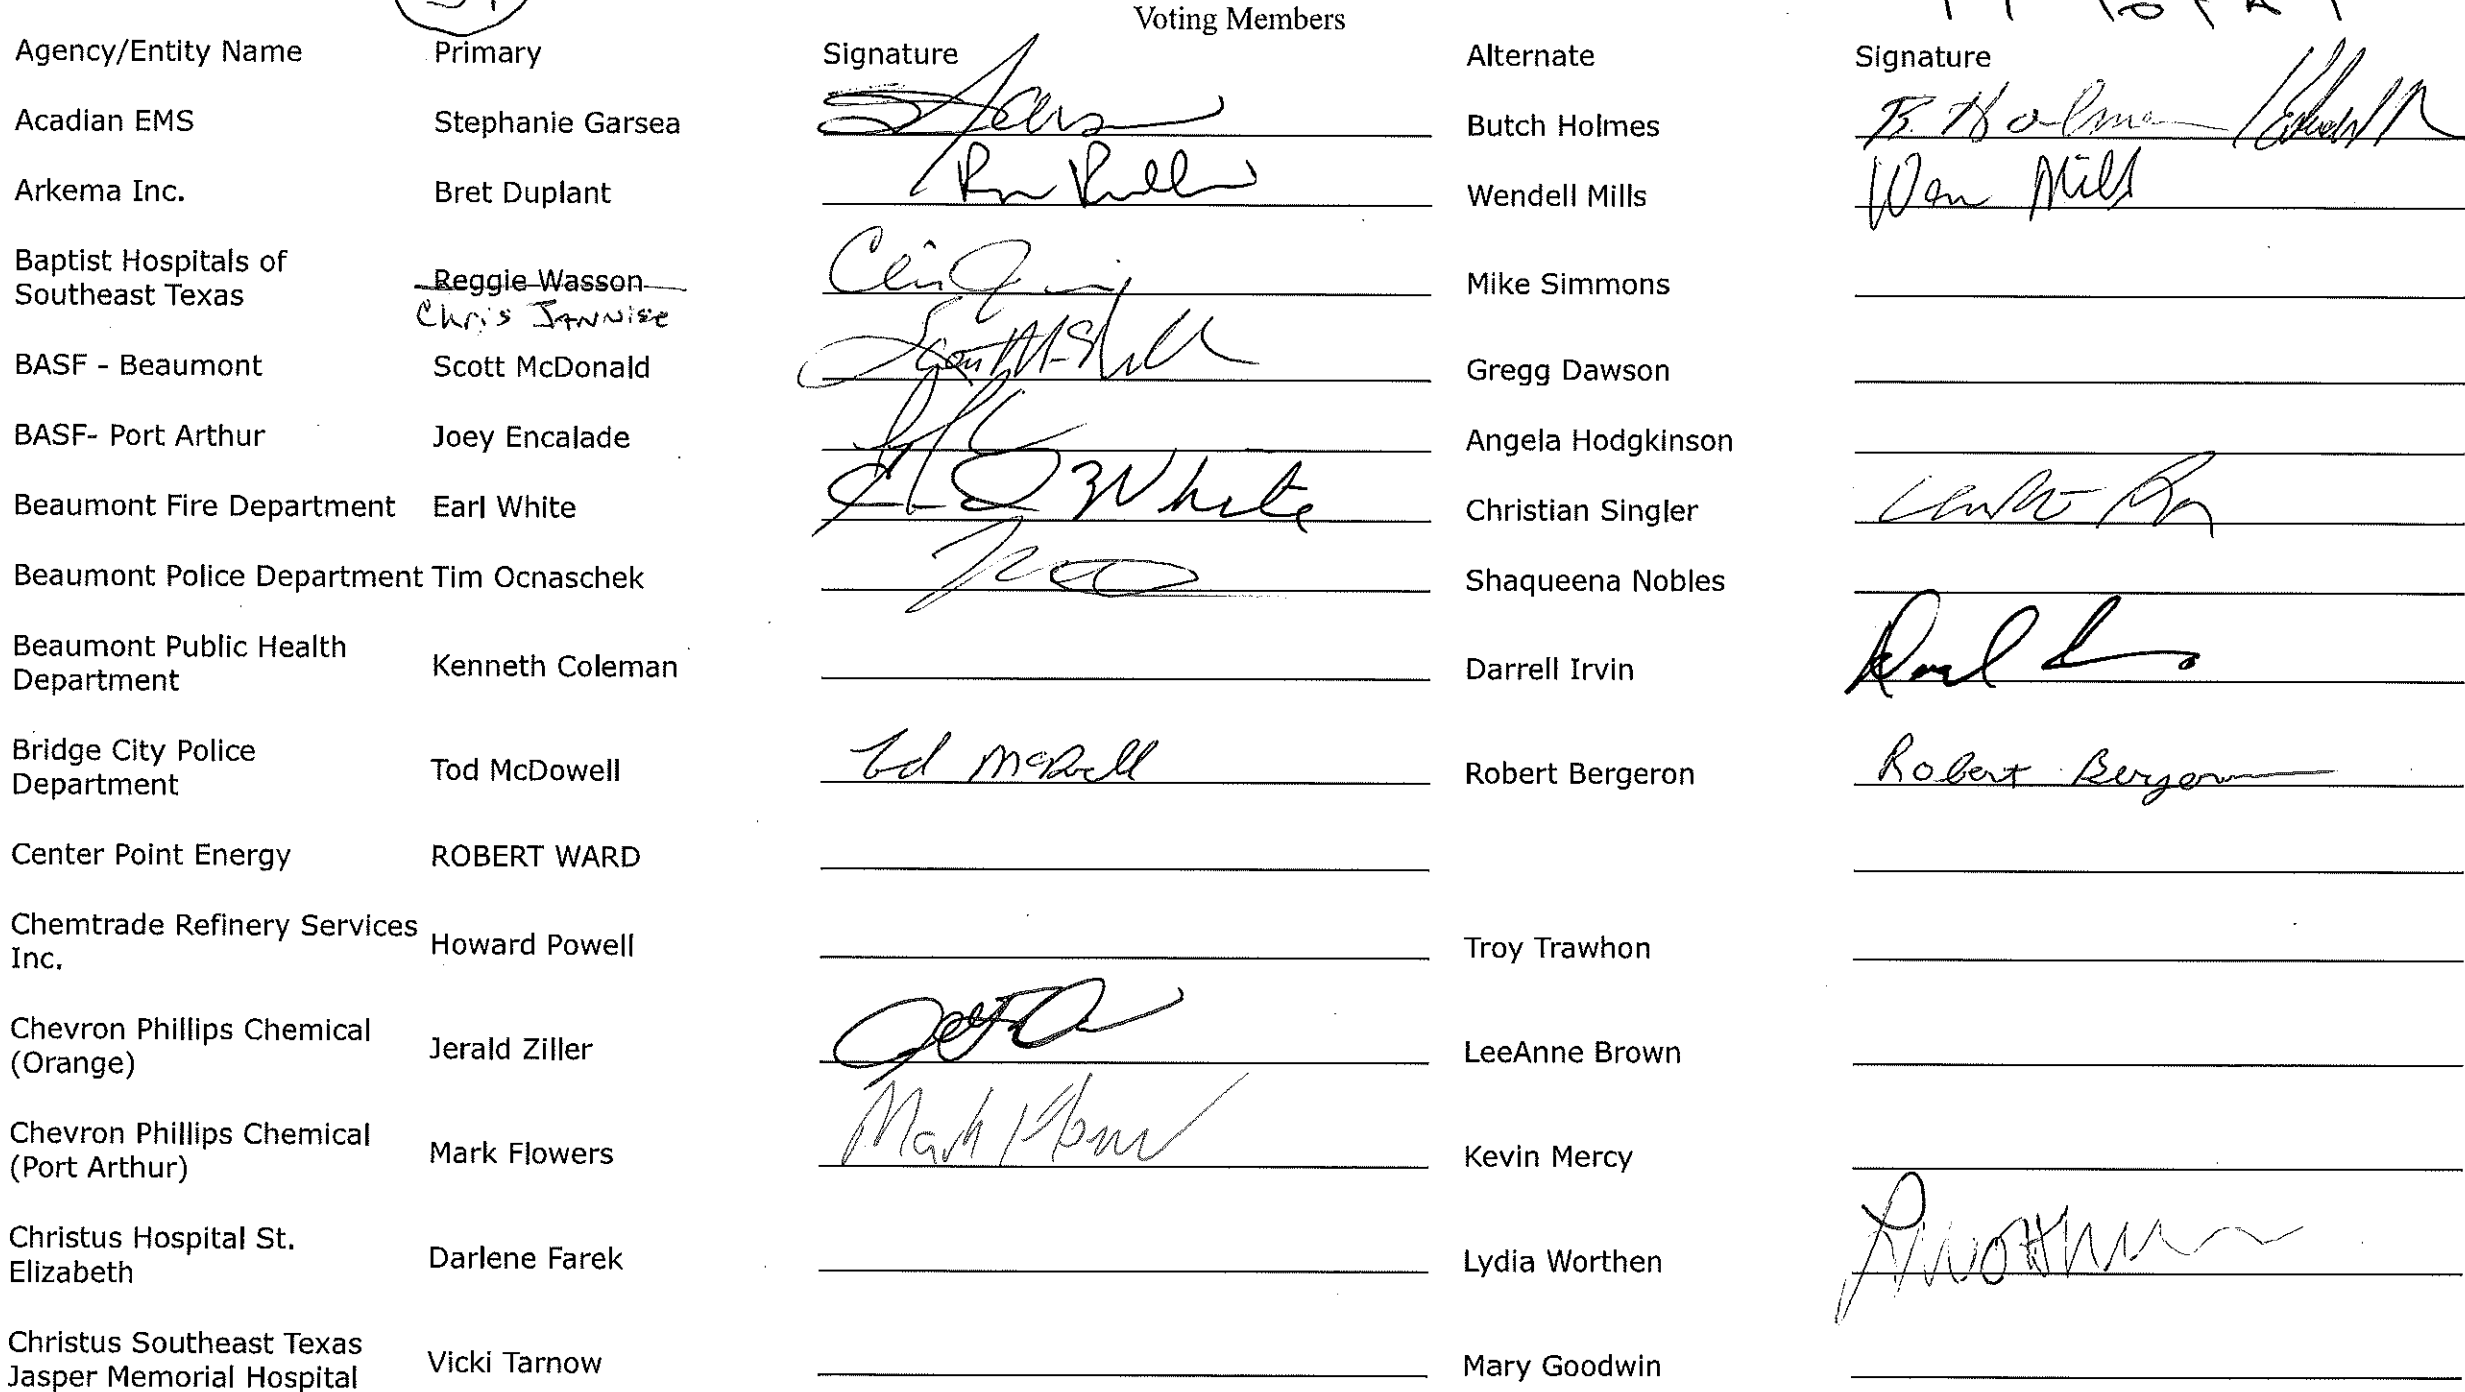 Voting Members
Agency/Entity Name Primary Signature Alternate Signature
Acadian EMS Stephanie Garsea Butch Holmes B. Holmes
Arkema Inc. Bret Duplant Wendell Mills Wen Mills
Baptist Hospitals of
Southeast Texas Reggie Wasson Mike Simmons
Chris JANNise
BASF - Beaumont Scott McDonald Gregg Dawson
BASF- Port Arthur Joey Encalade Angela Hodgkinson
Beaumont Fire Department Earl White White Christian Singler
Beaumont Police Department Tim Ocnaschek Shaqueena Nobles
Beaumont Public Health
Department Kenneth Coleman Darrell Irvin
Bridge City Police
Department Tod McDowell Tod McDowell Robert Bergeron Robert Bergeron
Center Point Energy ROBERT WARD
Chemtrade Refinery Services
Inc. Howard Powell Troy Trawhon
Chevron Phillips Chemical
(Orange) Jerald Ziller LeeAnne Brown
Chevron Phillips Chemical
(Port Arthur) Mark Flowers Mark Flowers Kevin Mercy
Christus Hospital St.
Elizabeth Darlene Farek Lydia Worthen LWorthen
Christus Southeast Texas
Jasper Memorial Hospital Vicki Tarnow Mary Goodwin